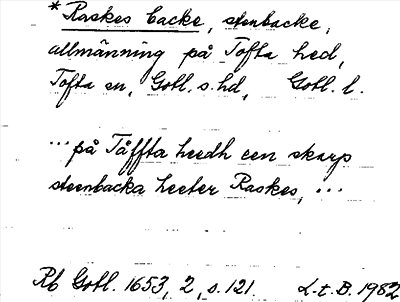 * Raskes backe, stenbacke,
allmänning på Tofta hed,
Tofta sn, Gotl. s. hd, Gotl. l.
... på Tåffta heedh een skarp
steenbacka heeter Raskes, ...
Rb Gotl. 1653, 2, s. 121. L.t.B. 1982